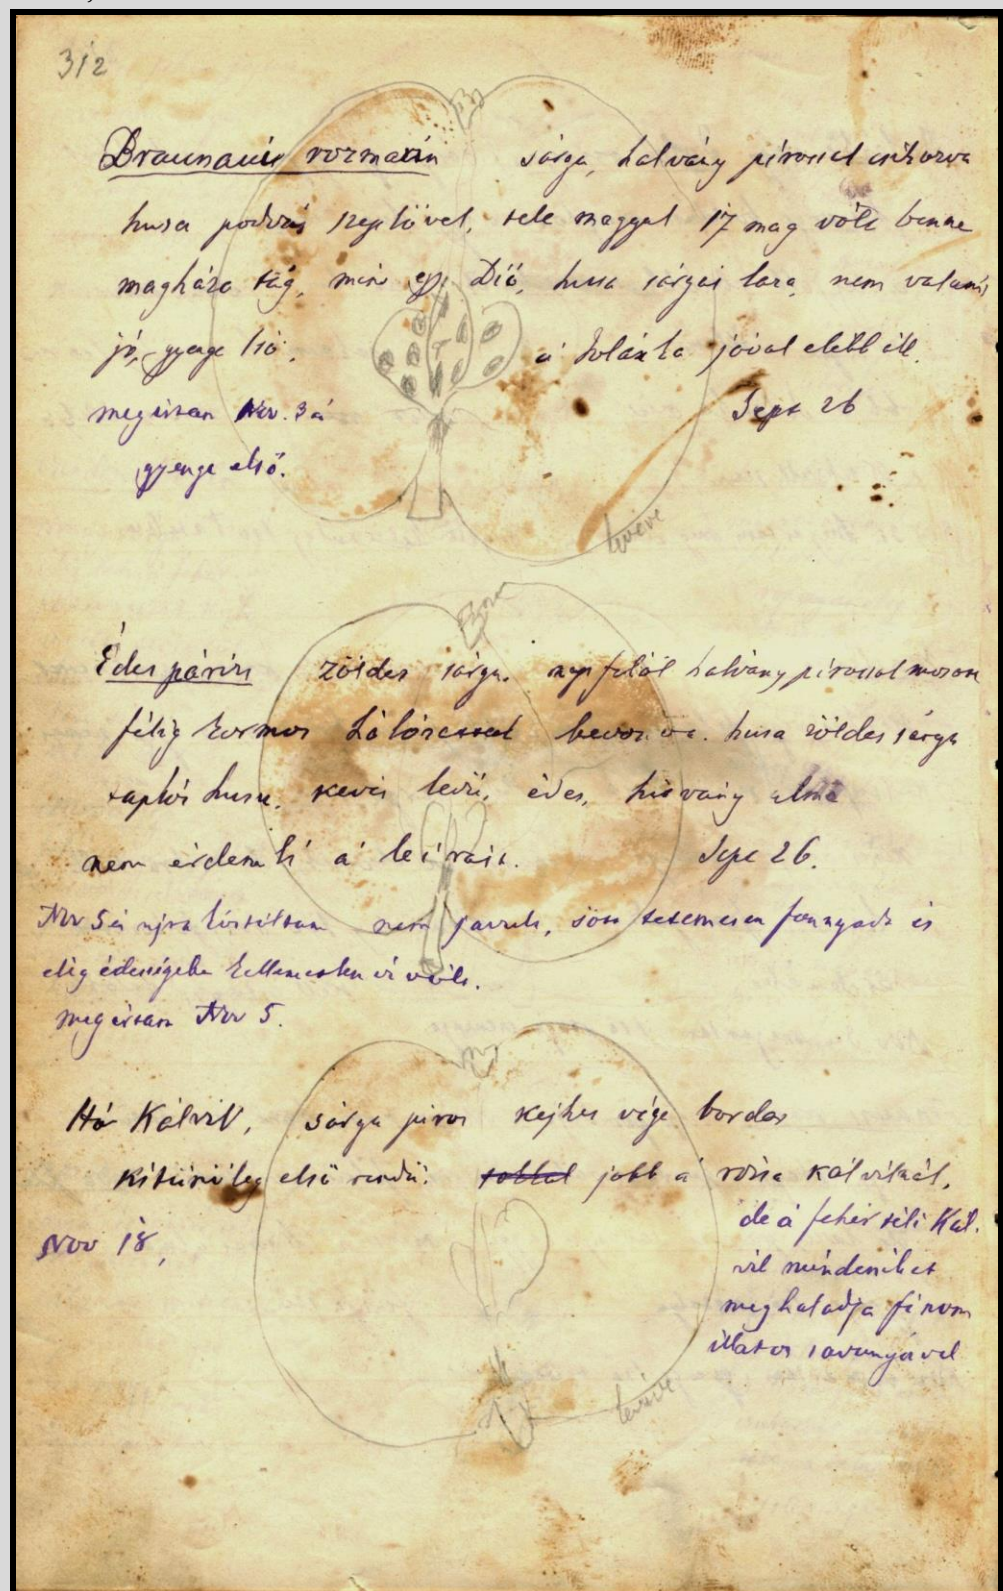 312
Braunaui rozmarin sárga, halvány pirossal csikozva
husa podvás szeplövel, tele maggal 17 mag völt benne
magháza tág, mint egy Dió, husa sárgás laza, nem valami
jó, gyenge á jóval elébb áll.
megértem Nov. 3 á Sept 26
gyenge elsö.
levéve
Édes párizs zöldes sárga. nap felöl halvány pirossal mosva
félig kormos hálózattal bevonva. husa zöldes sárga
taplós husu, kevés levü, édes, hitvány alma
nem érdemli á leirást. Sept 26.
Nov 5 én ujra kóstoltam nem javult, söt tetemesen fonnyadt és
elég édességébe kellemetlen iz völt.
megértem Nov 5.
Hó Kálvil, sárga piros kejhes vége bordás
kitünöleg elsö rendü. sokkal jobb á rósa kálvilnál,
de á fehér téli Kál.
Nov 18,
vil mindeniket
meghaladja finom
illatos savanyával
levéve